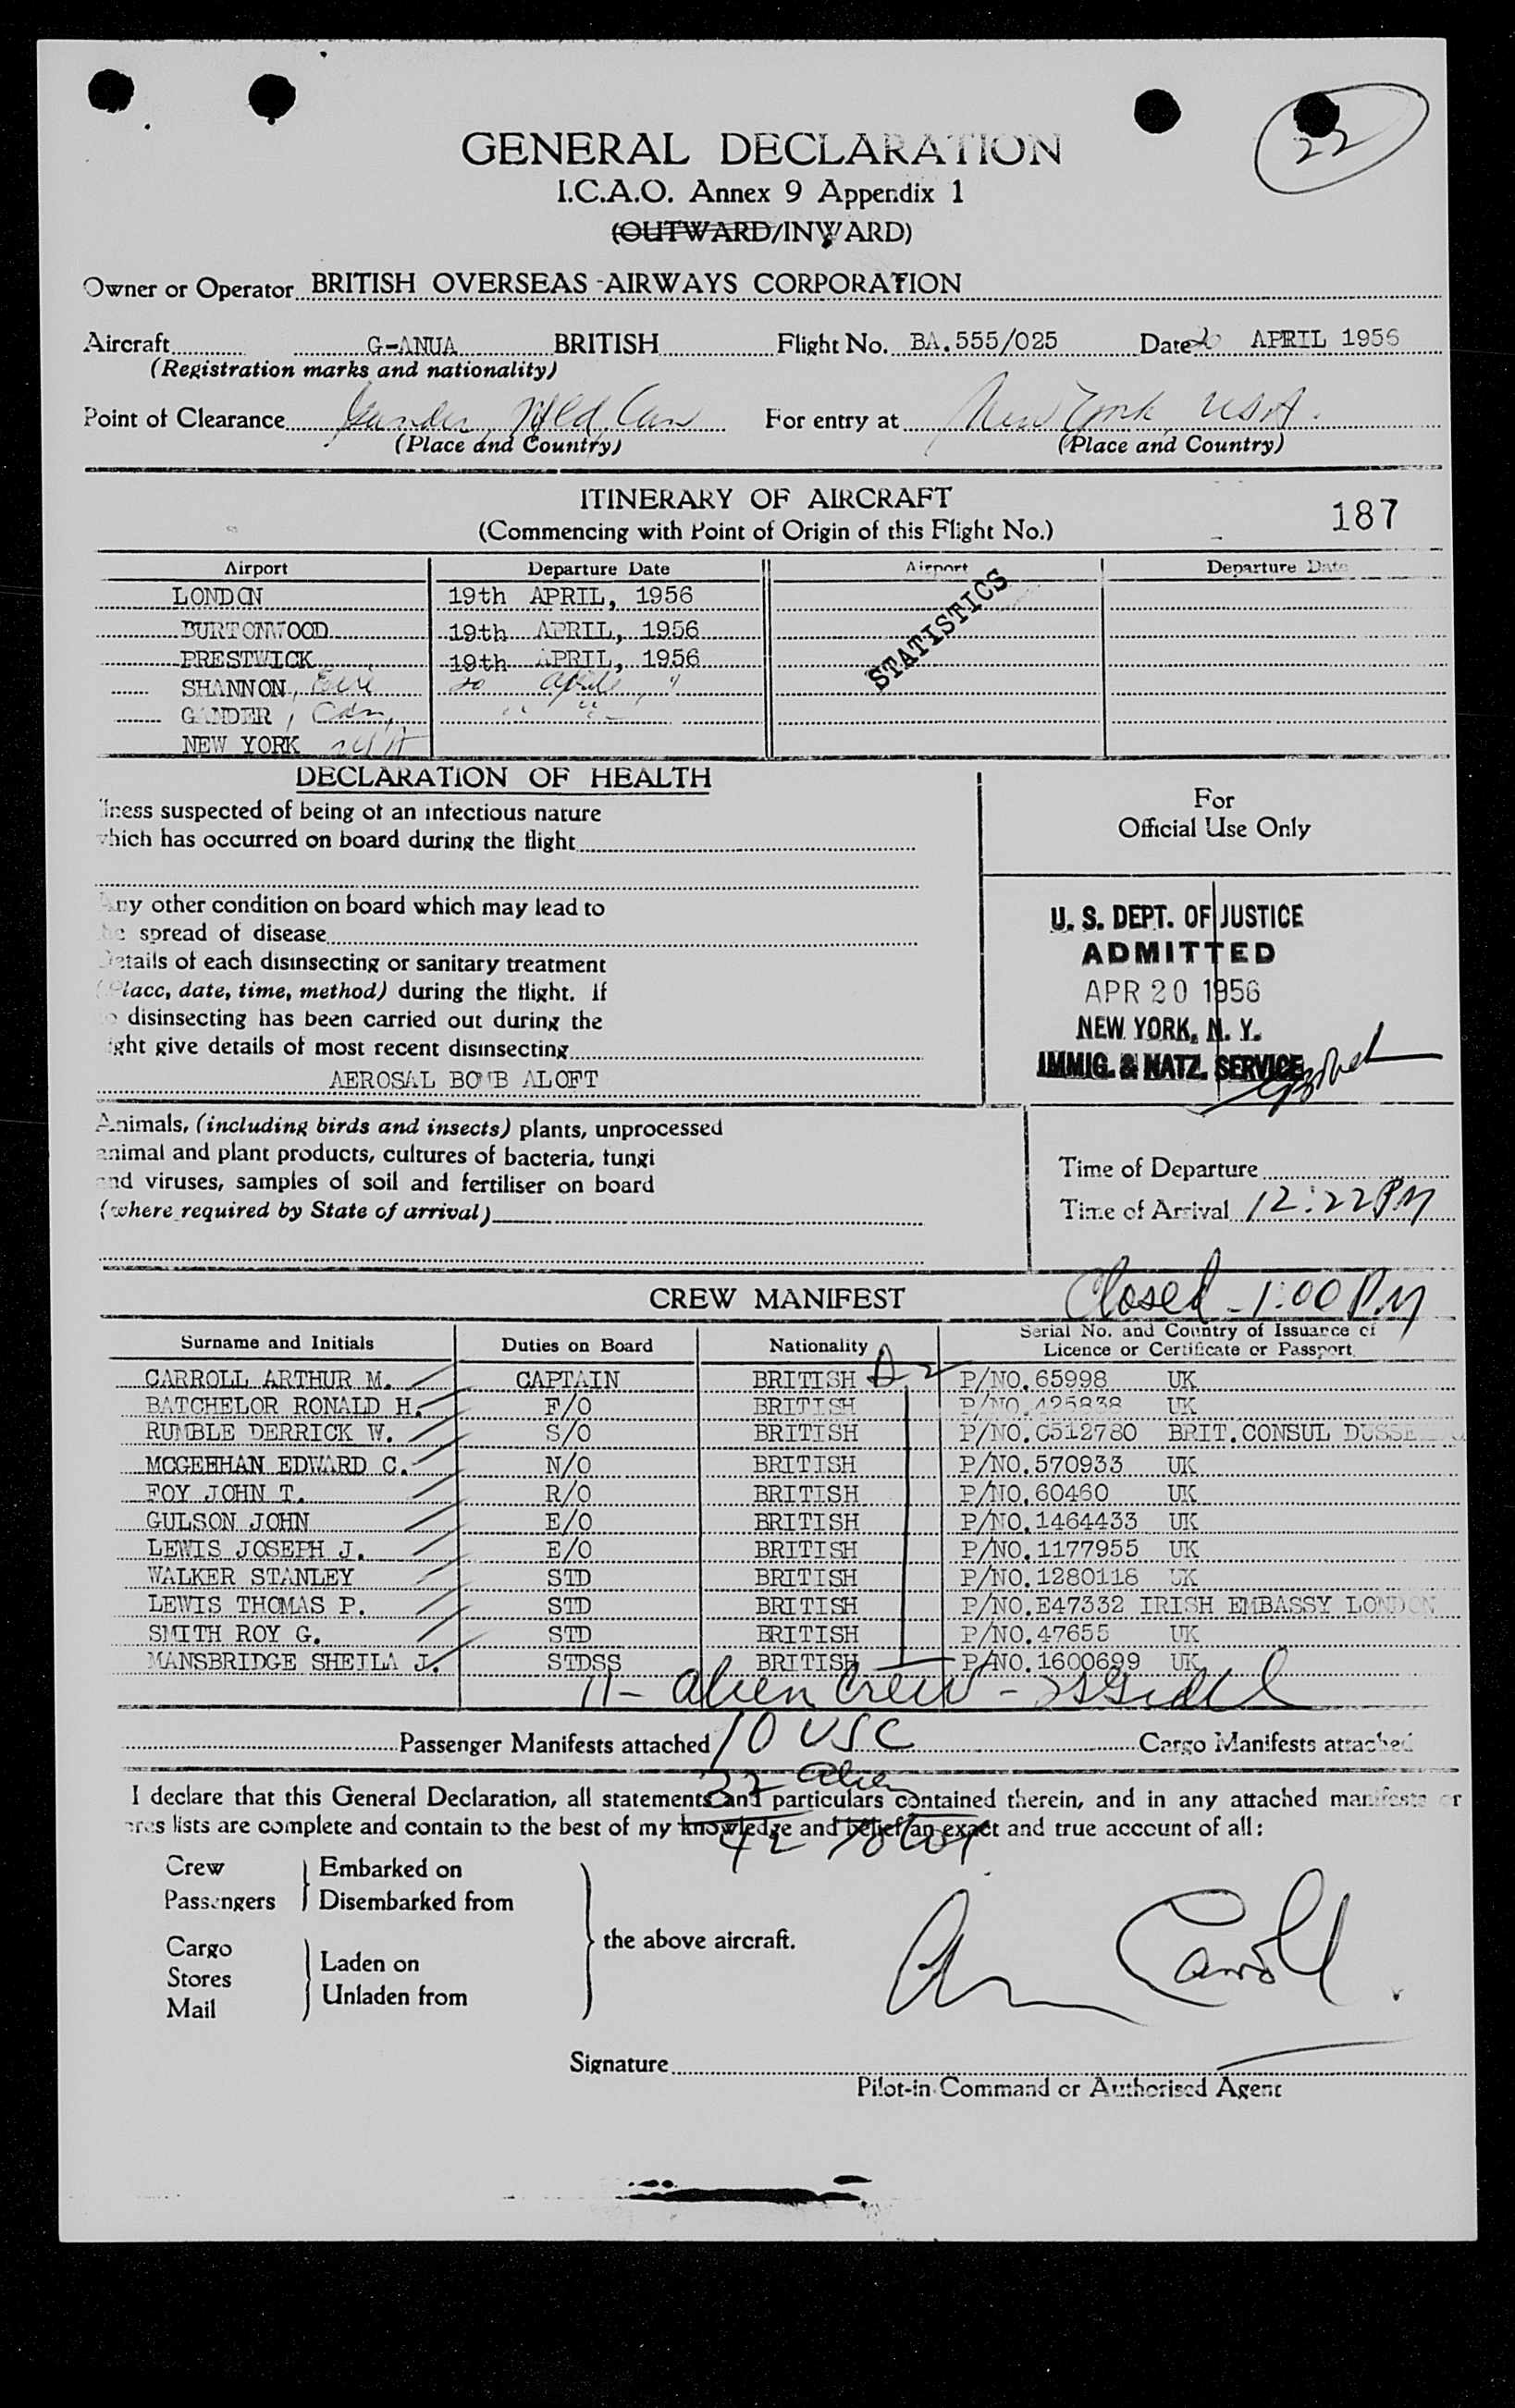 22
GENERAL DECLARATION
I.C.A.O. Annex 9 Appendix 1
(OUTWARD/INWARD)
Owner or Operator BRITISH OVERSEAS AIRWAYS CORPORATION
Aircraft G-ANUA BRITISH Flight No. BA.555/025 Date 20 APRIL 1956
(Registration marks and nationality)
Point of Clearance Gander, Nfld, Can For entry at New York USA.
(Place and Country) (Place and Country)
ITINERARY OF AIRCRAFT
(Commencing with Point of Origin of this Flight No.) 187
Airport Departure Date Airport Departure Date
STATISTICS
LONDON 19th APRIL, 1956
BURTONWOOD 19th APRIL, 1956
PRESTWICK 19th APRIL, 1956
SHANNON, Eire 20 April, "
GANDER, Can, " "
NEW YORK USA
DECLARATION OF HEALTH
llness suspected of being of an infectious nature
which has occurred on board during the flight
Any other condition on board which may lead to
the spread of disease
Details of each disinsecting or sanitary treatment
(Place, date, time, method) during the flight. If
no disinsecting has been carried out during the
ight give details of most recent disinsecting
AEROSAL BOMB ALOFT
For
Official Use Only
U. S. DEPT. OF JUSTICE
ADMITTED
APR 20 1956
NEW YORK, N. Y.
IMMIG. & NATZ. SERVICE
Animals, (including birds and insects) plants, unprocessed
animal and plant products, cultures of bacteria, fungi
and viruses, samples of soil and fertiliser on board
(where required by State of arrival)
Time of Departure
Time of Arrival 12:22 PM
Closed - 1:00 P.M
CREW MANIFEST
Surname and Initials Duties on Board Nationality Serial No. and Country of Issuance of Licence or Certificate or Passport
CARROLL ARTHUR M. CAPTAIN BRITISH P/NO.65998 UK
BATCHELOR RONALD H. F/O BRITISH P/NO.425838 UK
RUMBLE DERRICK W. S/O BRITISH P/NO.C512780 BRIT.CONSUL
MCGEEHAN EDWARD C. N/O BRITISH P/NO.570933 UK
FOY JOHN T. R/O BRITISH P/NO.60460 UK
GULSON JOHN E/O BRITISH P/NO.1464433 UK
LEWIS JOSEPH J. E/O BRITISH P/NO.1177955 UK
WALKER STANLEY STD BRITISH P/NO.1280118 UK
LEWIS THOMAS P. STD BRITISH P/NO.E47332 IRISH EMBASSY LONDON
SMITH ROY G. STD BRITISH P/NO.47655 UK
MANSBRIDGE SHEILA J. STDSS BRITISH P/NO.1600699 UK
11 - alien crew -
Passenger Manifests attached 10 USC Cargo Manifests attached
32 alien
I declare that this General Declaration, all statements and particulars contained therein, and in any attached manifests or
ores lists are complete and contain to the best of my knowledge and belief an exact and true account of all:
42 total
Crew Embarked on
Passengers Disembarked from
the above aircraft.
Cargo
Stores Laden on
Mail Unladen from
Am Carroll.
Signature
Pilot-in-Command or Authorised Agent